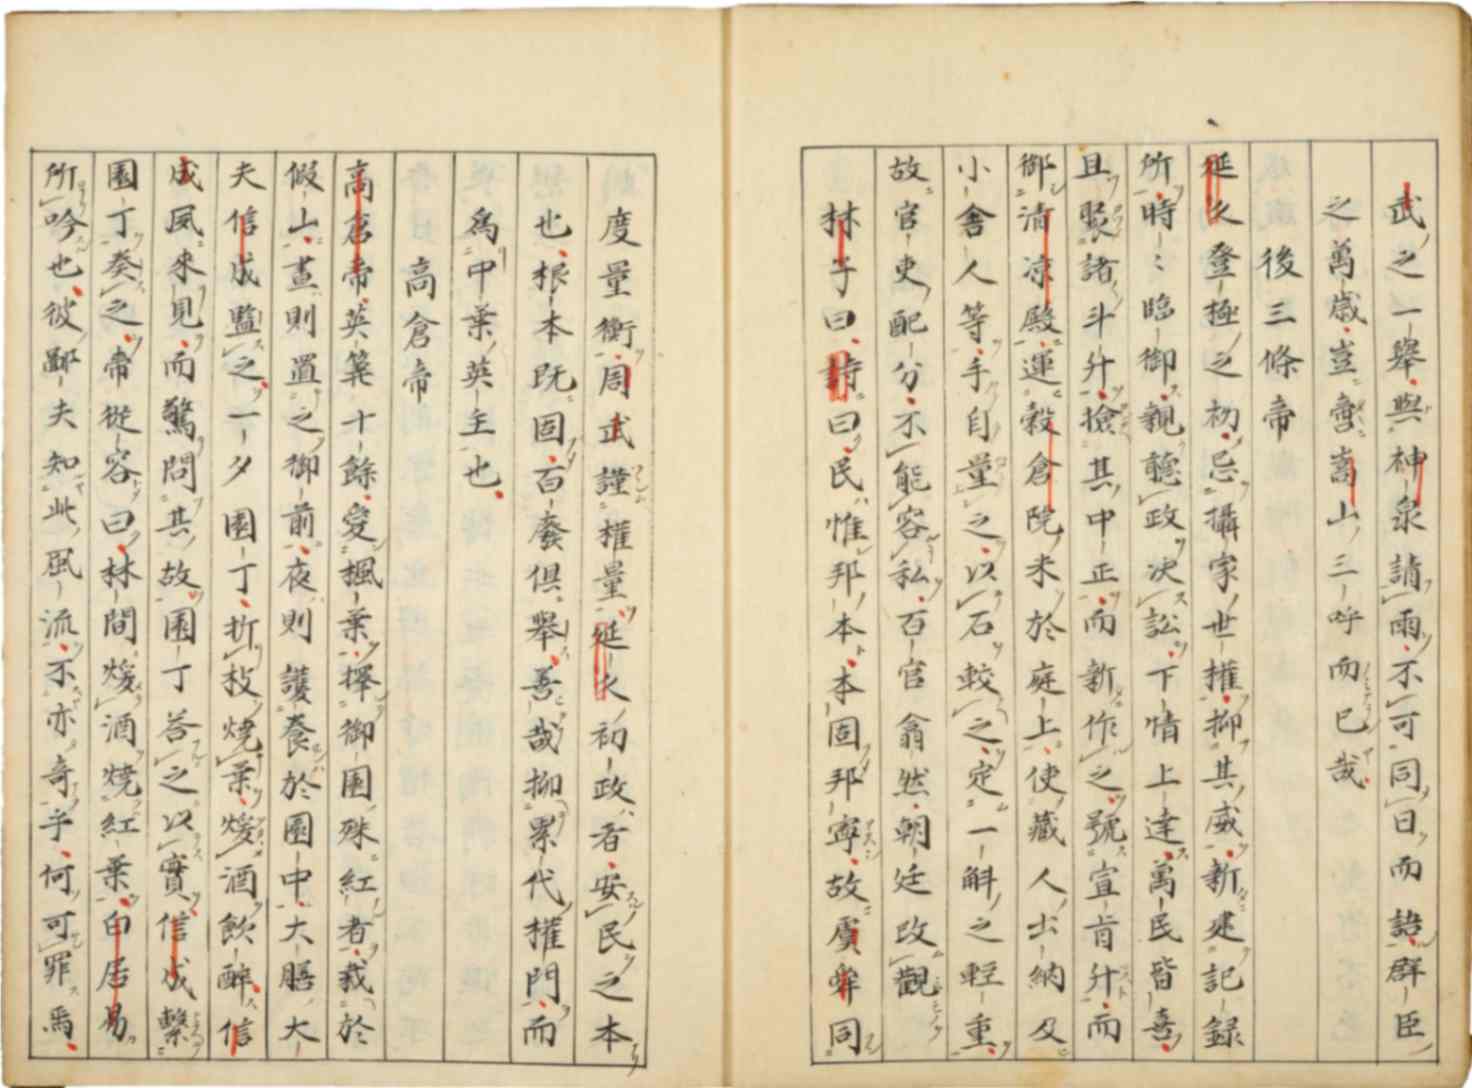 武之一舉與神泉請雨不可同日而語群臣
之萬歲豈啻嵩山三呼而已哉
後三條帝
延久登極之初忌攝家世權抑其威新建記録
所時々臨御親聽政决訟下情上達萬民皆喜
且聚諸斗升撿其中正而新作之號宣旨升而
御清凉殿運穀倉院米於庭上使藏人出納及
小舎人等手自量之以石較之定一斛之輕重
故官吏配分不能容私百官翕然朝廷改觀
林子曰詩曰民惟邦本本固邦寧故虞舜同
度量衡周武謹權量延久初政者安民之本
也根本既固百廢俱舉善哉抑累代權門而
為中葉英主也
高倉帝
高倉帝英筭十餘愛楓葉擇御園殊紅者栽於
假山晝則置之御前夜則護養於園中大膳大
夫信成監之一夕園丁折枝燒葉煖酒飲醉信
成夙來見而驚問其故園丁荅之以實信成繫
園丁奏之帝從容曰林間煖酒燒紅葉白居易
所吟也彼鄙夫知此風流不亦奇乎何可罪焉